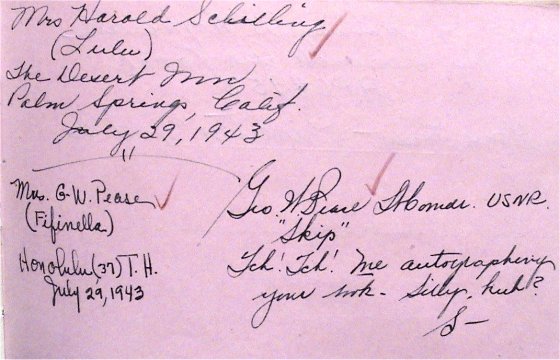 Mrs Harold Schilling
(Lulu)
The Desert Inn
Palm Springs, Calif.
July 29, 1943
"
Mrs. G. W. Pease
(Fifinella)
Honolulu (37) T. H.
July 29, 1943
Geo. W Pease Lt Comdr. USNR.
"Skip"
Tch! Tch! Me autographing
your book - Silly, huh?
S-